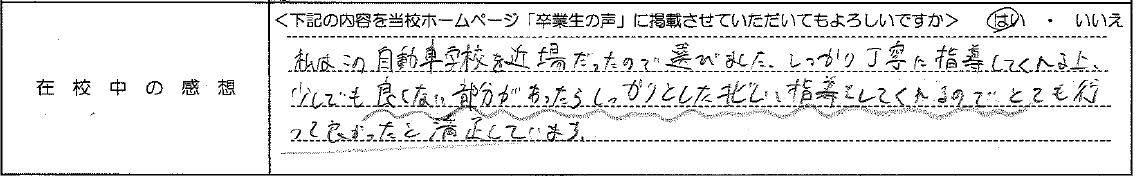 <下記の内容を当校ホームページ「卒業生の声」に掲載させていただいてもよろしいですか> はい ・ いいえ
在校中の感想
私はこの自動車学校を近場だったので選びました。しっかり丁寧に指導してくれる上、
少しでも良くない部分があったらしっかりとした正しい指導をしてくれるのでとても行
って良かったと満足しています。